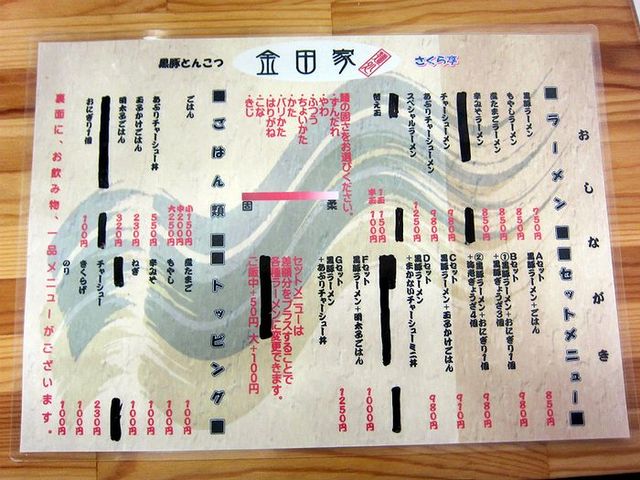 黒豚とんこつ
金田家
さくら亭
おしながき
■ラーメン■
黒豚ラーメン 750円
もやしラーメン 850円
煮たまごラーメン 850円
辛みそラーメン 850円
チャーシューメン 980円
あぶりチャーシューメン 980円
スペシャルラーメン 1250円
替え玉 1玉 150円
半玉 100円
麺の固さをお選びください。
・ずんだれ
・やわ
・ふつう
・ちょいかた
・かた
・バリかた
・はりがね
・こな
・きじ
固
柔
■セットメニュー■
Aセット
黒豚ラーメン+ごはん 850円
Bセット
①黒豚ラーメン+おにぎり1個
+黒豚ぎょうざ3個 980円
②黒豚ラーメン+おにぎり1個
+海老ぎょうざ4個 980円
Cセット
黒豚ラーメン+玉子かけごはん 910円
Dセット
黒豚ラーメン
+まかないチャーシューミニ丼 980円
Fセット
黒豚ラーメン+明太子ごはん 1000円
Gセット
黒豚ラーメン
+あぶりチャーシュー丼 1250円
セットメニューは
差額分をプラスすることで
各種ラーメンに変更できます。
ご飯中+50円 大+100円
■ごはん類■
ごはん 小150円
中200円
大250円
あぶりチャーシュー丼 550円
玉子かけごはん 230円
明太子ごはん 320円
おにぎり1個 100円
■トッピング■
煮たまご 100円
もやし 100円
辛みそ 100円
ねぎ 100円
チャーシュー 230円
きくらげ 100円
のり 100円
裏面に、お飲み物、一品メニューがございます。